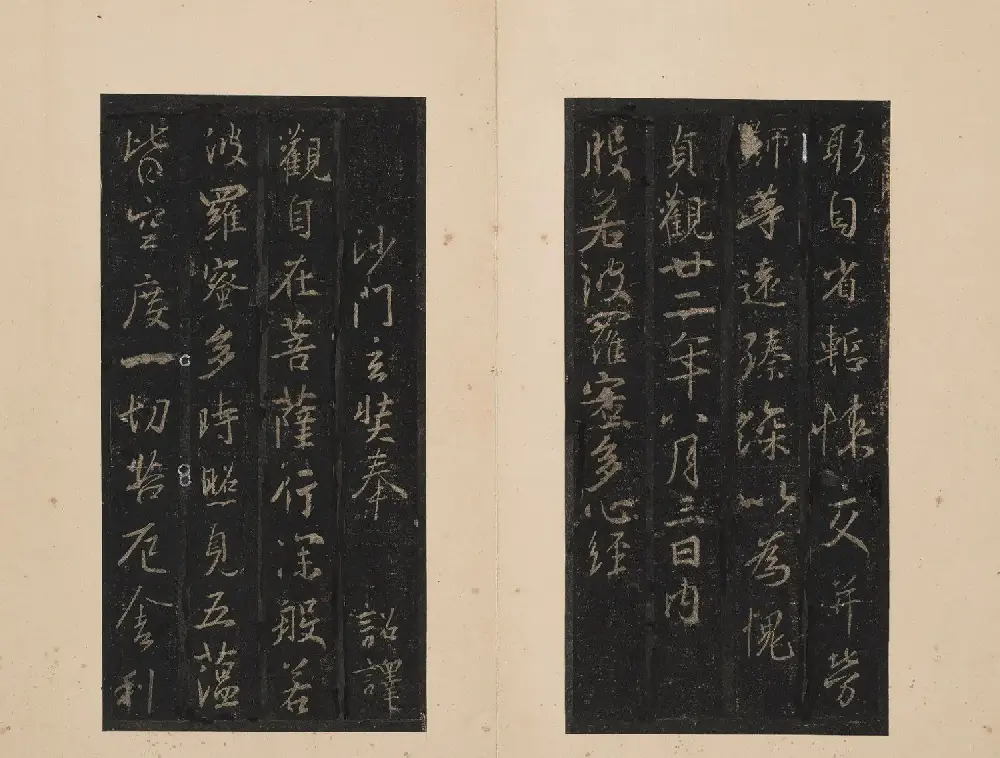 形自省慙悚交并勞
師等遠臻深以為愧
貞觀廿二年八月三日內
般若波羅蜜多心經
沙門玄奘奉 詔譯
觀自在菩薩行深般若
波羅蜜多時照見五蘊
皆空度一切苦厄舍利